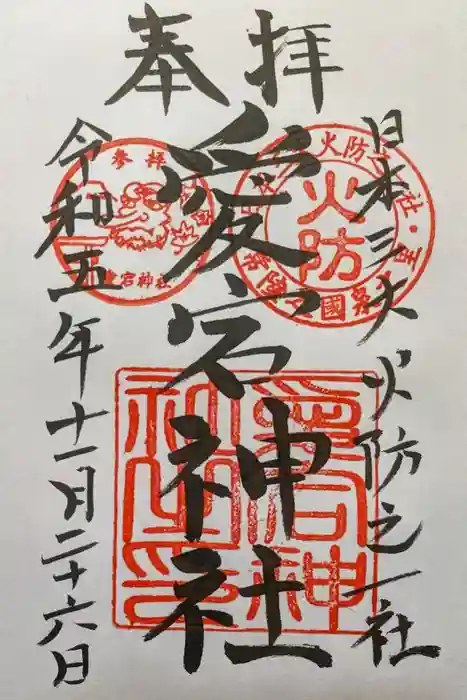 奉拝
日本三大火防之一社
愛宕神社
令和五年十一月二十六日
火防
参拝
愛宕神社